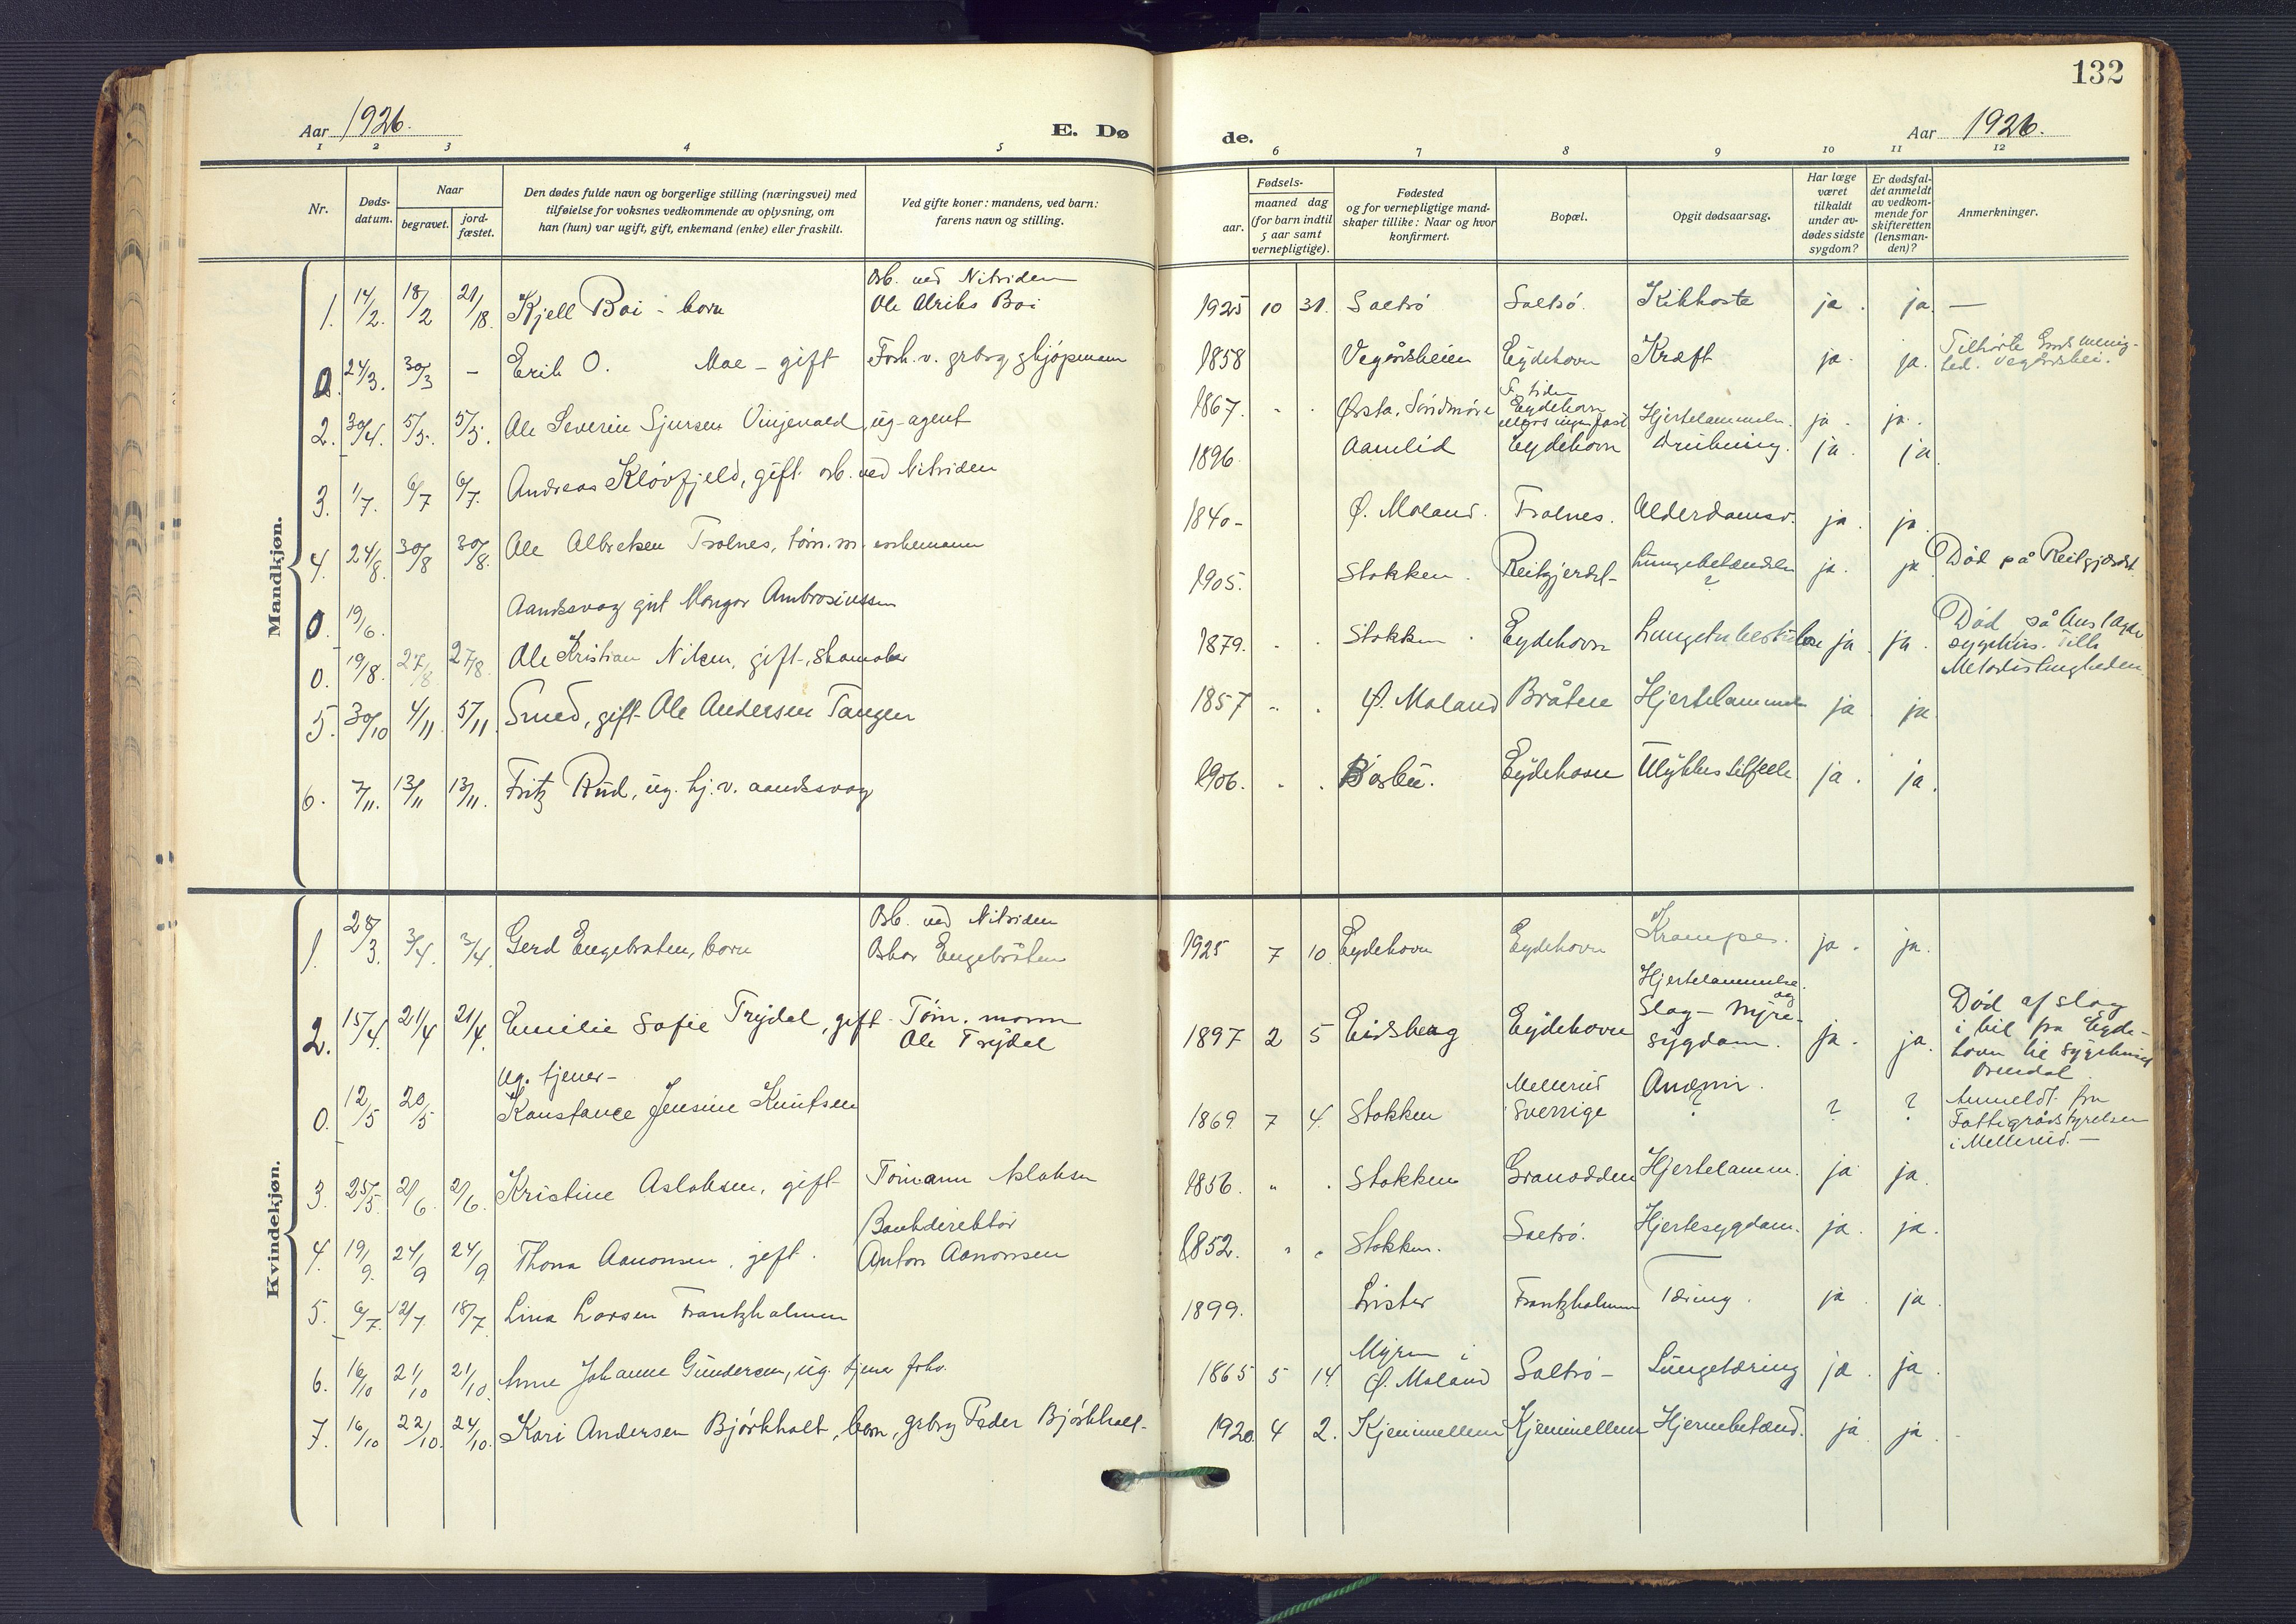 132
Aar 1926.
E. Dø
de.
Aar 1926.
1 2 3 4 5 6 7 8 9 10 11 12
Nr.
Døds-
datum.
Naar
begravet.
jord-
fæstet.
Den dødes fulde navn og borgerlige stilling (næringsvei) med
tilføielse for voksnes vedkommende av oplysning, om
han (hun) var ugift, gift, enkemand (enke) eller fraskilt.
Ved gifte koner: mandens, ved barn:
farens navn og stilling.
Fødsels-
aar.
maaned dag
(for barn indtil
5 aar samt
vernepligtige).
Fødested
og for vernepligtige mand-
skaper tillike: Naar og hvor
konfirmert.
Bopæl.
Opgit dødsaarsag.
Har læge
været
tilkaldt
under av-
dødes sidste
sygdom?
Er dødsfal-
det anmeldt
av vedkom-
mende for
skifteretten
(lensman-
den)?
Anmerkninger.
Mandkjøn.
Arb. ved Nitriden
1. 14/2. 18/2 21/18. Kjell Boi - barn Ole Alriks Boi 1925 10 31. Saltrö Saltrö. Kikhoste ja. ja. —
0. 24/3. 30/3 - Erik O. Moe - gift Forh. v. grbrg gkjöpmann 1858 Vegårdsheien Eydehavn Kræft ja. ja. Tilhørte menig-
hed. Vegårdshei.
2. 30/4. 5/5. 5/5. Ole Severin Sjursen Vinjevold, ug - agent 1867. Ørsta, Söndmöre F. tiden
Eydehavn
ingen fast Hjertelammelse. ja. ja.
3. 1/7. 6/7 6/7. Andreas Klövfjeld, gift arb. ved Nitriden 1896. Aamlid Eydehavn drukning. ja. ja.
4. 24/8. 30/8 30/8. Ole Albretsen Tralnes, töm.m. enkemann 1840 - Ø. Moland. Tralnes. Alderdomsv. ja. ja.
0. 19/6. Aandssvag gut Mangor Ambrosiussen 1905. Stokken. Reitgjerdet - Lungebetændelse
? ja. ja Död på Reitgjerdet.
0. 19/8. 27/8 27/8. Ole Kristian Nilsen, gift, skomaker 1879. Stokken. Eydehavn Lungetuberkulose ja. ja. Död på Aust Agder
sygehus. Tilh.
Metodistmenigheden
5. 30/10 4/11 5/11. Smed, gift Ole Andersen Tangen 1857 Ø. Moland Bråten Hjertelammelse ja ja.
6. 7/11. 13/11 13/11. Fritz Rud, ug. hj. v. aandssvag 1906. Barbu. Eydehavn Ulykkestilfelle ja. ja.
Kvindekjøn.
Arb. ved Nitriden
1. 28/3. 3/4. 3/4. Gerd Engebraten, barn Oskar Engebråten 1925 7 10. Eydehavn Eydehavn Krampe. ja. ja.
Hjertelammelse.
2. 15/4. 21/4 21/4. Emilie Sofie Trydal, gift - Töm. mann
Ole Trydal 1897 2 5 Eidsberg Eydehavn Slag - og Nyre-
sygdom. ja. ja. Död af slag
i bil fra Eyde-
havn til Sygehuset
Arendal
ug. tjener -
0. 12/5 20/5 Konstance Jensine Knutsen 1869. 7 4. Stokken Mellerud
Sverrige Anæmi.
? ? ? Anmeldt fra
Fattigvårdstyrelsen
i Mellerud. —
3. 25/5. 2/6 2/6. Kristine Aslaksen, gift Tömann Aslaksen 1856. Stokken Granodden Hjertelamm. ja ja.
Bankdirektör
4. 19/9. 24/9 24/9 Thona Aanonsen, gift. Anton Aanonsen 1852. Stokken. Saltrö. Hjertesygdom. ja. ja.
5. 6/7. 12/7. 18/7 Lina Larsen Frantzholmen 1899. Lister Frantzholmen Tæring. ja. ja.
6. 16/10 21/10 21/10. Anne Johanne Gundersen, ug. tjener forh. 1865 5 14. Myren i
Ø. Moland Saltrö - Lungetæring ja. ja.
7. 16/10 22/10. 24/10. Kari Andersen Björkholt, barn, grbrg Peder Björkholt. 1920. 4 2. Kjenmellem Kjenmellem Hjernebetænd. ja ja.